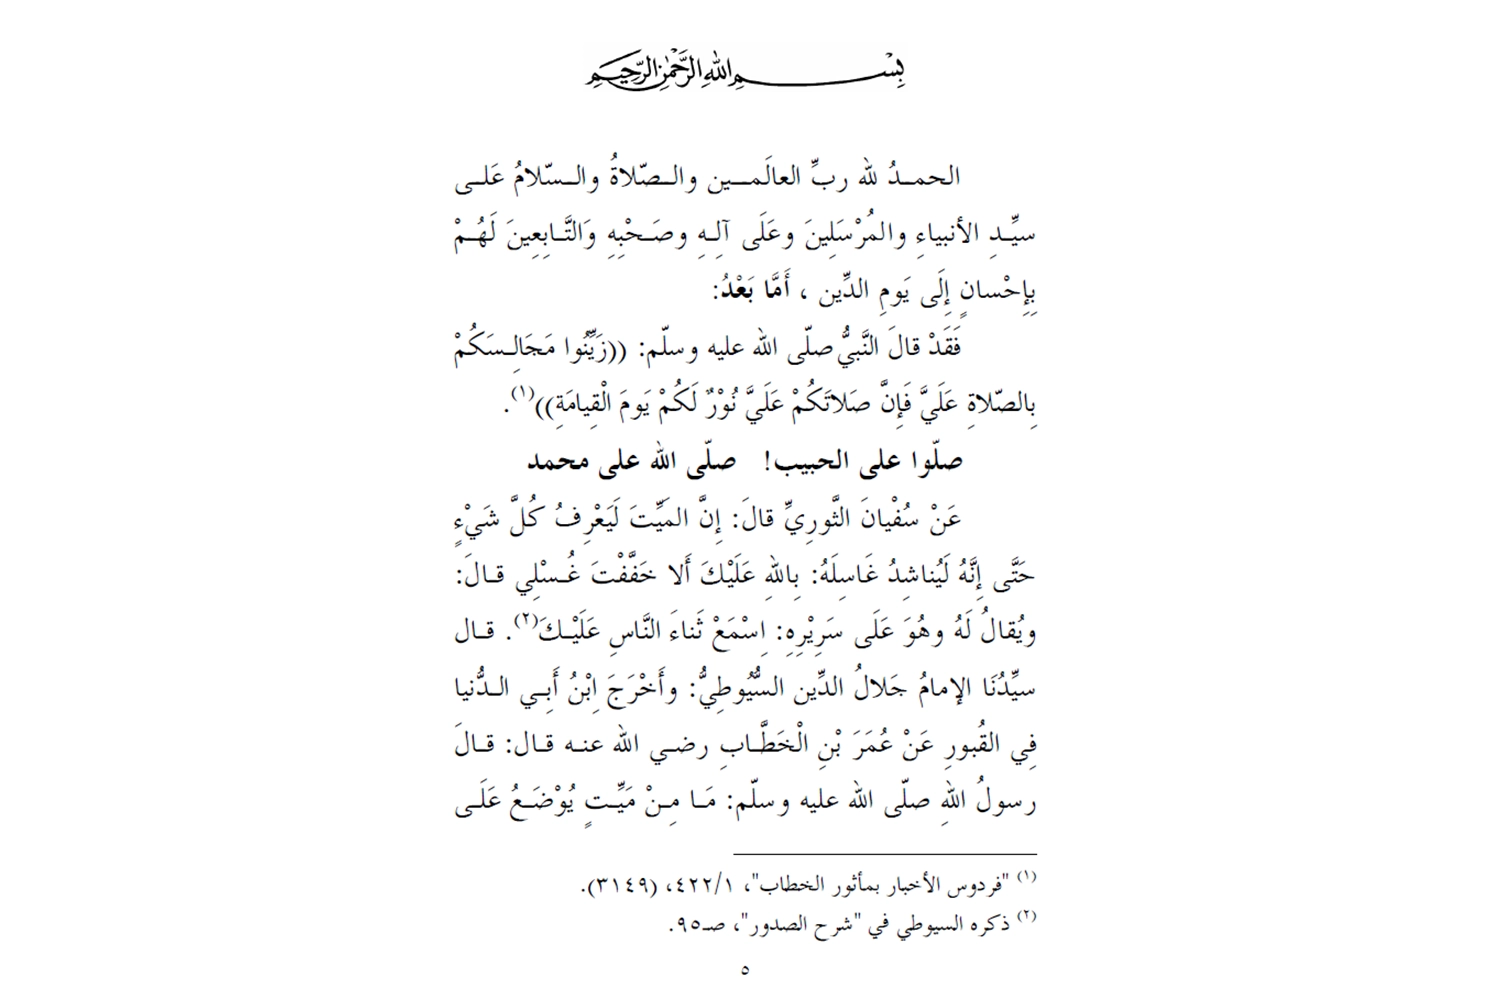 بِسْمِ اللهِ الرَّحْمٰنِ الرَّحِيْمِ
الحمـدُ لله ربِّ العالَمـين والـصّلاةُ والـسّلامُ عَلـى
سيِّـدِ الأنبياءِ والمُرْسَلِينَ وعَلَى آلِـهِ وصَـحْبِهِ وَالتَّـابِعِينَ لَهُـمْ
بِإِحْسانٍ إِلَى يَومِ الدِّين ، أَمَّا بَعْدُ:
فَقَدْ قالَ النَّبيُّ صلّى الله عليه وسلّم: ((زَيِّنُوا مَجَالِـسَكُمْ
بِالصّلاةِ عَلَيَّ فَإِنَّ صَلاتَكُمْ عَلَيَّ نُوْرٌ لَكُمْ يَومَ الْقِيامَةِ))(١).
صلّوا على الحبيب! صلّى الله على محمد
عَنْ سُفْيانَ الثَّورِيِّ قالَ: إِنَّ المَيِّتَ لَيَعْرِفُ كُلَّ شَيْءٍ
حَتَّى إِنَّهُ لَيُناشِدُ غَاسِلَهُ: بِاللهِ عَلَيْكَ أَلا خَفَّفْتَ غُـسْلِي قـالَ:
ويُقالُ لَهُ وهُوَ عَلَى سَرِيْرِهِ: اِسْمَعْ ثَناءَ النَّاسِ عَلَيْـكَ(٢). قـال
سيِّدُنَا الإمامُ جَلالُ الدِّين السُّيُوطِيُّ: وأَخْرَجَ اِبْنُ أَبِـي الـدُّنيا
فِي القُبورِ عَنْ عُمَرَ بْنِ الْخَطَّـابِ رضـي الله عنـه قـال: قـالَ
رسولُ اللهِ صلّى الله عليه وسلّم: مَـا مِـنْ مَيِّـتٍ يُوْضَـعُ عَلَـى
(١) "فردوس الأخبار بمأثور الخطاب"، ٤٢٢/١، (٣١٤٩).
(٢) ذكره السيوطي في "شرح الصدور"، صـ٩٥.
٥